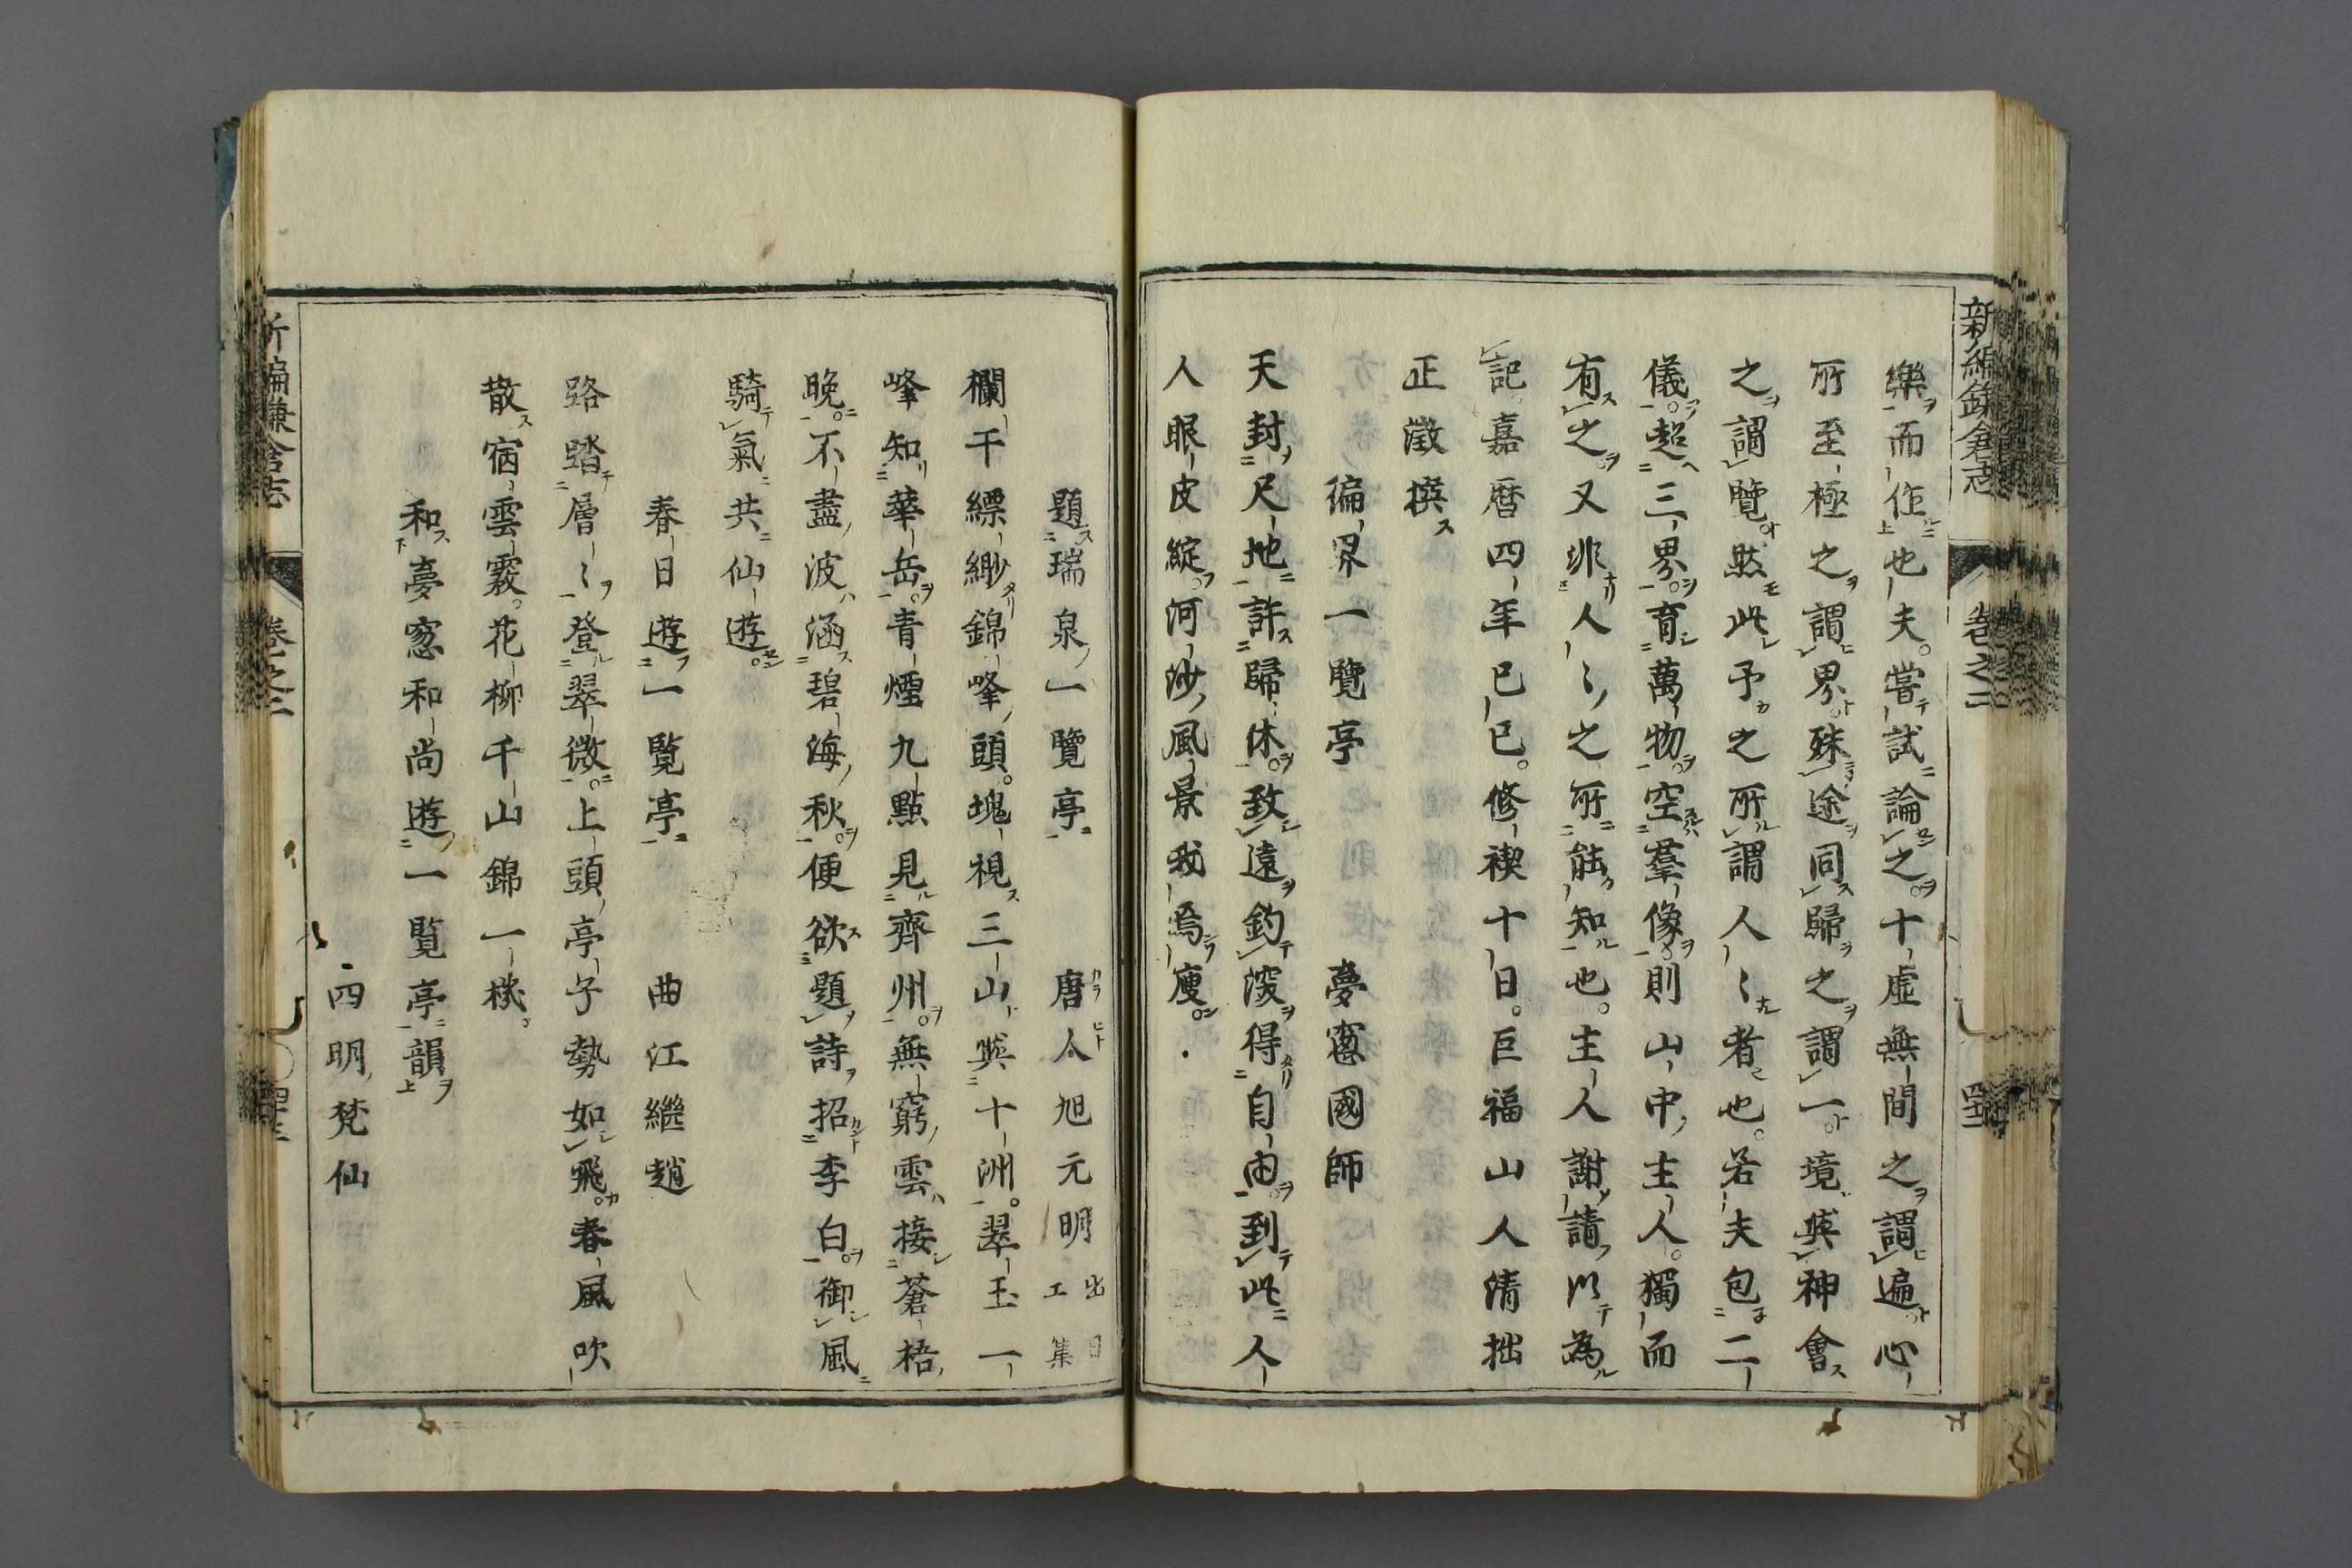 新編鎌倉志 卷之二
樂而作也夫嘗試論之十虛無間之謂遍心
所至極之謂界殊途同歸之謂一境與神會
之謂覽然此予之所謂人〻者也若夫包二
儀超三界育萬物空羣像則山中主人獨而
有之又非人〻之所能知也主人謝請以為
記嘉曆四年己巳修禊十日巨福山人清拙
正澂撰
徧界一覽亭 夢窓國師
天封尺地許歸休致遠鈎深得自由到此人
人眼皮綻河沙風景我焉廋
題瑞泉一覽亭 唐人旭元明出日工集
欄干縹緲錦峰頭塊視三山與十洲翠玉一
峰知華岳青煙九點見齊州無窮雲接蒼梧
晚不盡波涵碧海秋便欲題詩招李白御風
騎氣共仙遊
春日遊一覧亭 曲江繼趙
路踏層〻登翠微上頭亭子勢如飛春風吹
散宿雲霧花柳千山錦一機
和夢窓和尚遊一覧亭韻
四明梵仙